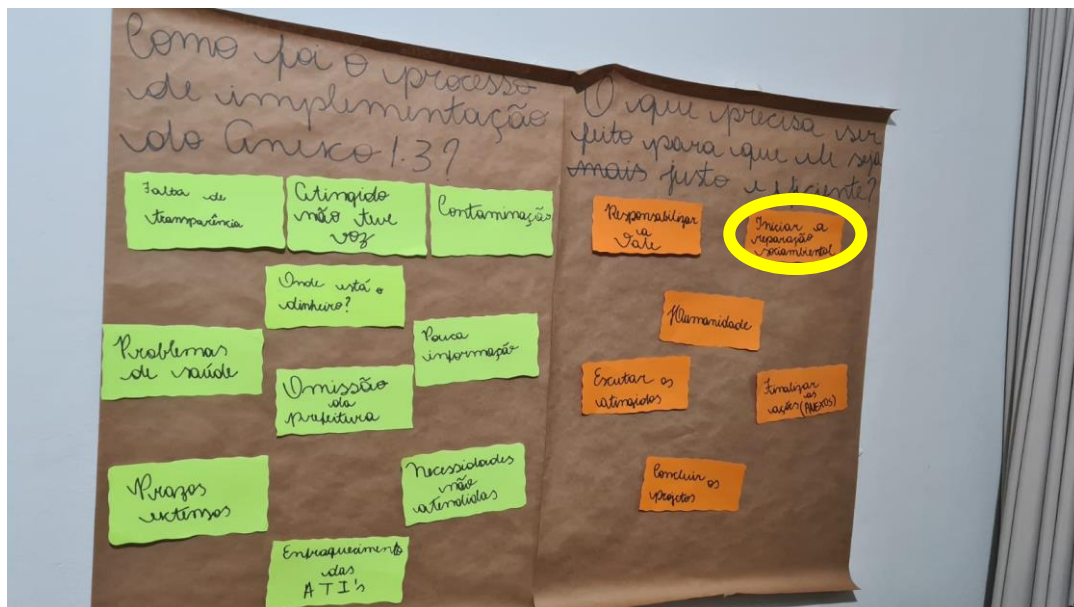 Como foi o processo
de implementação
do Anexo 1.3?
Falta de
transparência
Atingido
não teve
voz
Contaminação
Onde está o
dinheiro?
Problemas
de saúde
Pouca
informação
Omissão
da
prefeitura
Prazos
extensos
Necessidades
não
atendidas
Enfraquecimento
das
ATI's
O que precisa ser
feito para que ele seja
mais justo e eficiente?
Responsabilizar
a
Vale
Iniciar a
reparação
socioambiental
Humanidade
Escutar os
atingidos
Finalizar
as
ações (ANEXOS)
Concluir os
projetos